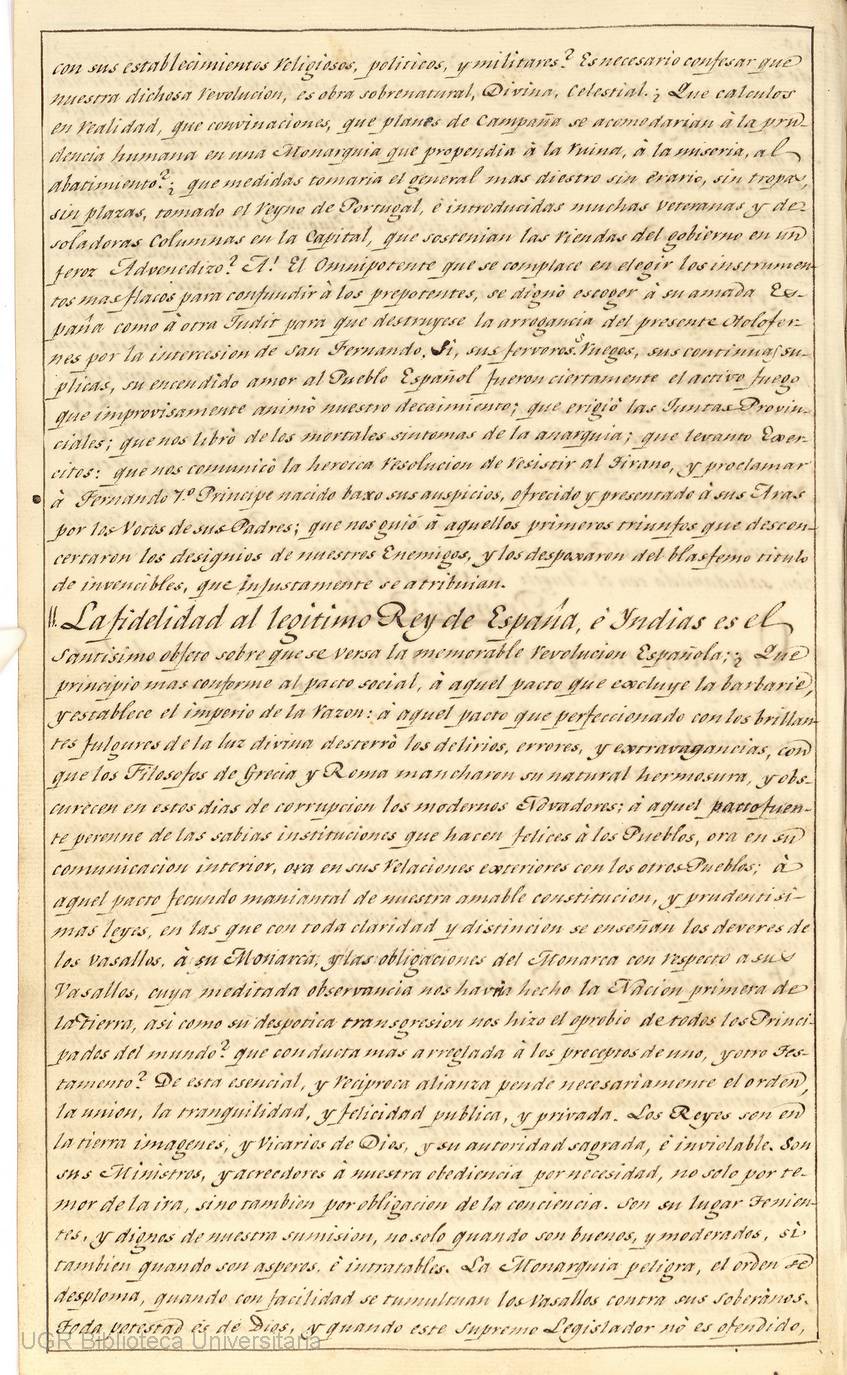 con sus establecimientos religiosos, politicos, y militares? Es necesario confesar que
nuestra dichosa revolucion, es obra sobrenatural, Divina, Celestial. ¿ Que calculos
en realidad, que convinaciones, que planes de Campaña se acomodarian à la pru-
dencia humana en una Monarquia que propendia à la ruina, à la miseria, al
abatimiento? ¿ que medidas tomaria el general mas diestro sin erario, sin tropas,
sin plazas, tomado el Reyno de Portugal, è introducidas muchas veteranas y de-
soladoras Columnas en la Capital, que sostenian las riendas del gobierno en un
feroz Advenedizo? A! El Omnipotente que se complace en elegir los instrumen-
tos mas flacos para confundir à los prepotentes, se dignò escoger à su amada Es-
paña como à otra Judit para que destruyese la arrogancia del presente Olofer-
nes por la intercesion de San Fernando. Si, sus fervorosos ruegos, sus continuas su-
plicas, su encendido amor al Pueblo Español fueron ciertamente el activo fuego
que improvisamente animò nuestro decaimiento; que erigiò las Juntas Provin-
ciales; que nos librò de los mortales sintomas de la anarquia; que levanto Exer-
citos: que nos comunicò la heroica resolucion de resistir al Tirano, y proclamar
à Fernando 7.º Principe nacido baxo sus auspicios, ofrecido y presentado à sus Aras
por los Votos de sus Padres; que nos guiò à aquellos primeros triunfos que descon-
certaron los designios de nuestros Enemigos, y los despoxaron del blasfemo titulo
de invencibles, que injustamente se atribuian.
II. La fidelidad al legitimo Rey de España, è Indias es el
Santisimo objeto sobre que se versa la memorable revolucion Española; ¿ Que
principio mas conforme al pacto social, à aquel pacto que excluye la barbarie,
y establece el imperio de la razon: à aquel pacto que perfeccionado con los brillan-
tes fulgures de la luz divina desterrò los delirios, errores, y extravagancias, con
que los Filosofos de Grecia y Roma mancharon su natural hermosura, y obs-
curecen en estos dias de corrupcion los modernos Novadores; à aquel pacto fuen-
te perenne de las sabias instituciones que hacen felices à los Pueblos, ora en su
comunicacion interior, ora en sus relaciones exteriores con los otros Pueblos; à
aquel pacto fecundo maniantal de nuestra amable constitucion, y prudentisi-
mas leyes, en las que con toda claridad y distincion se enseñan los deveres de
los vasallos, à su Monarca, y las obligaciones del Monarca con respecto a sus
Vasallos, cuya meditada observancia nos havria hecho la Nacion primera de
la tierra, asi como su despotica transgresion nos hizo el oprobio de todos los Princi-
pados del mundo? que conducta mas arreglada à los preceptos de uno, y otro Tes-
tamento? De esta esencial, y reciproca alianza pende necesariamente el orden,
la union, la tranquilidad, y felicidad publica, y privada. Los Reyes son en
la tierra imagenes, y Vicarios de Dios, y su autoridad sagrada, è inviolable. Son
sus Ministros, y acreedores à nuestra obediencia por necesidad, no solo por te-
mor de la ira, sino tambien por obligacion de la conciencia. Son su lugar Tenien-
tes, y dignos de nuestra sumision, no solo quando son buenos, y moderados, sì
tambien quando son asperos, è intratables. La Monarquia peligra, el orden se
desploma, quando con facilidad se tumultuan los vasallos contra sus soberanos.
Toda potestad es de Dios, y quando este Supremo Legislador no es ofendido,
UGR Biblioteca Universitaria